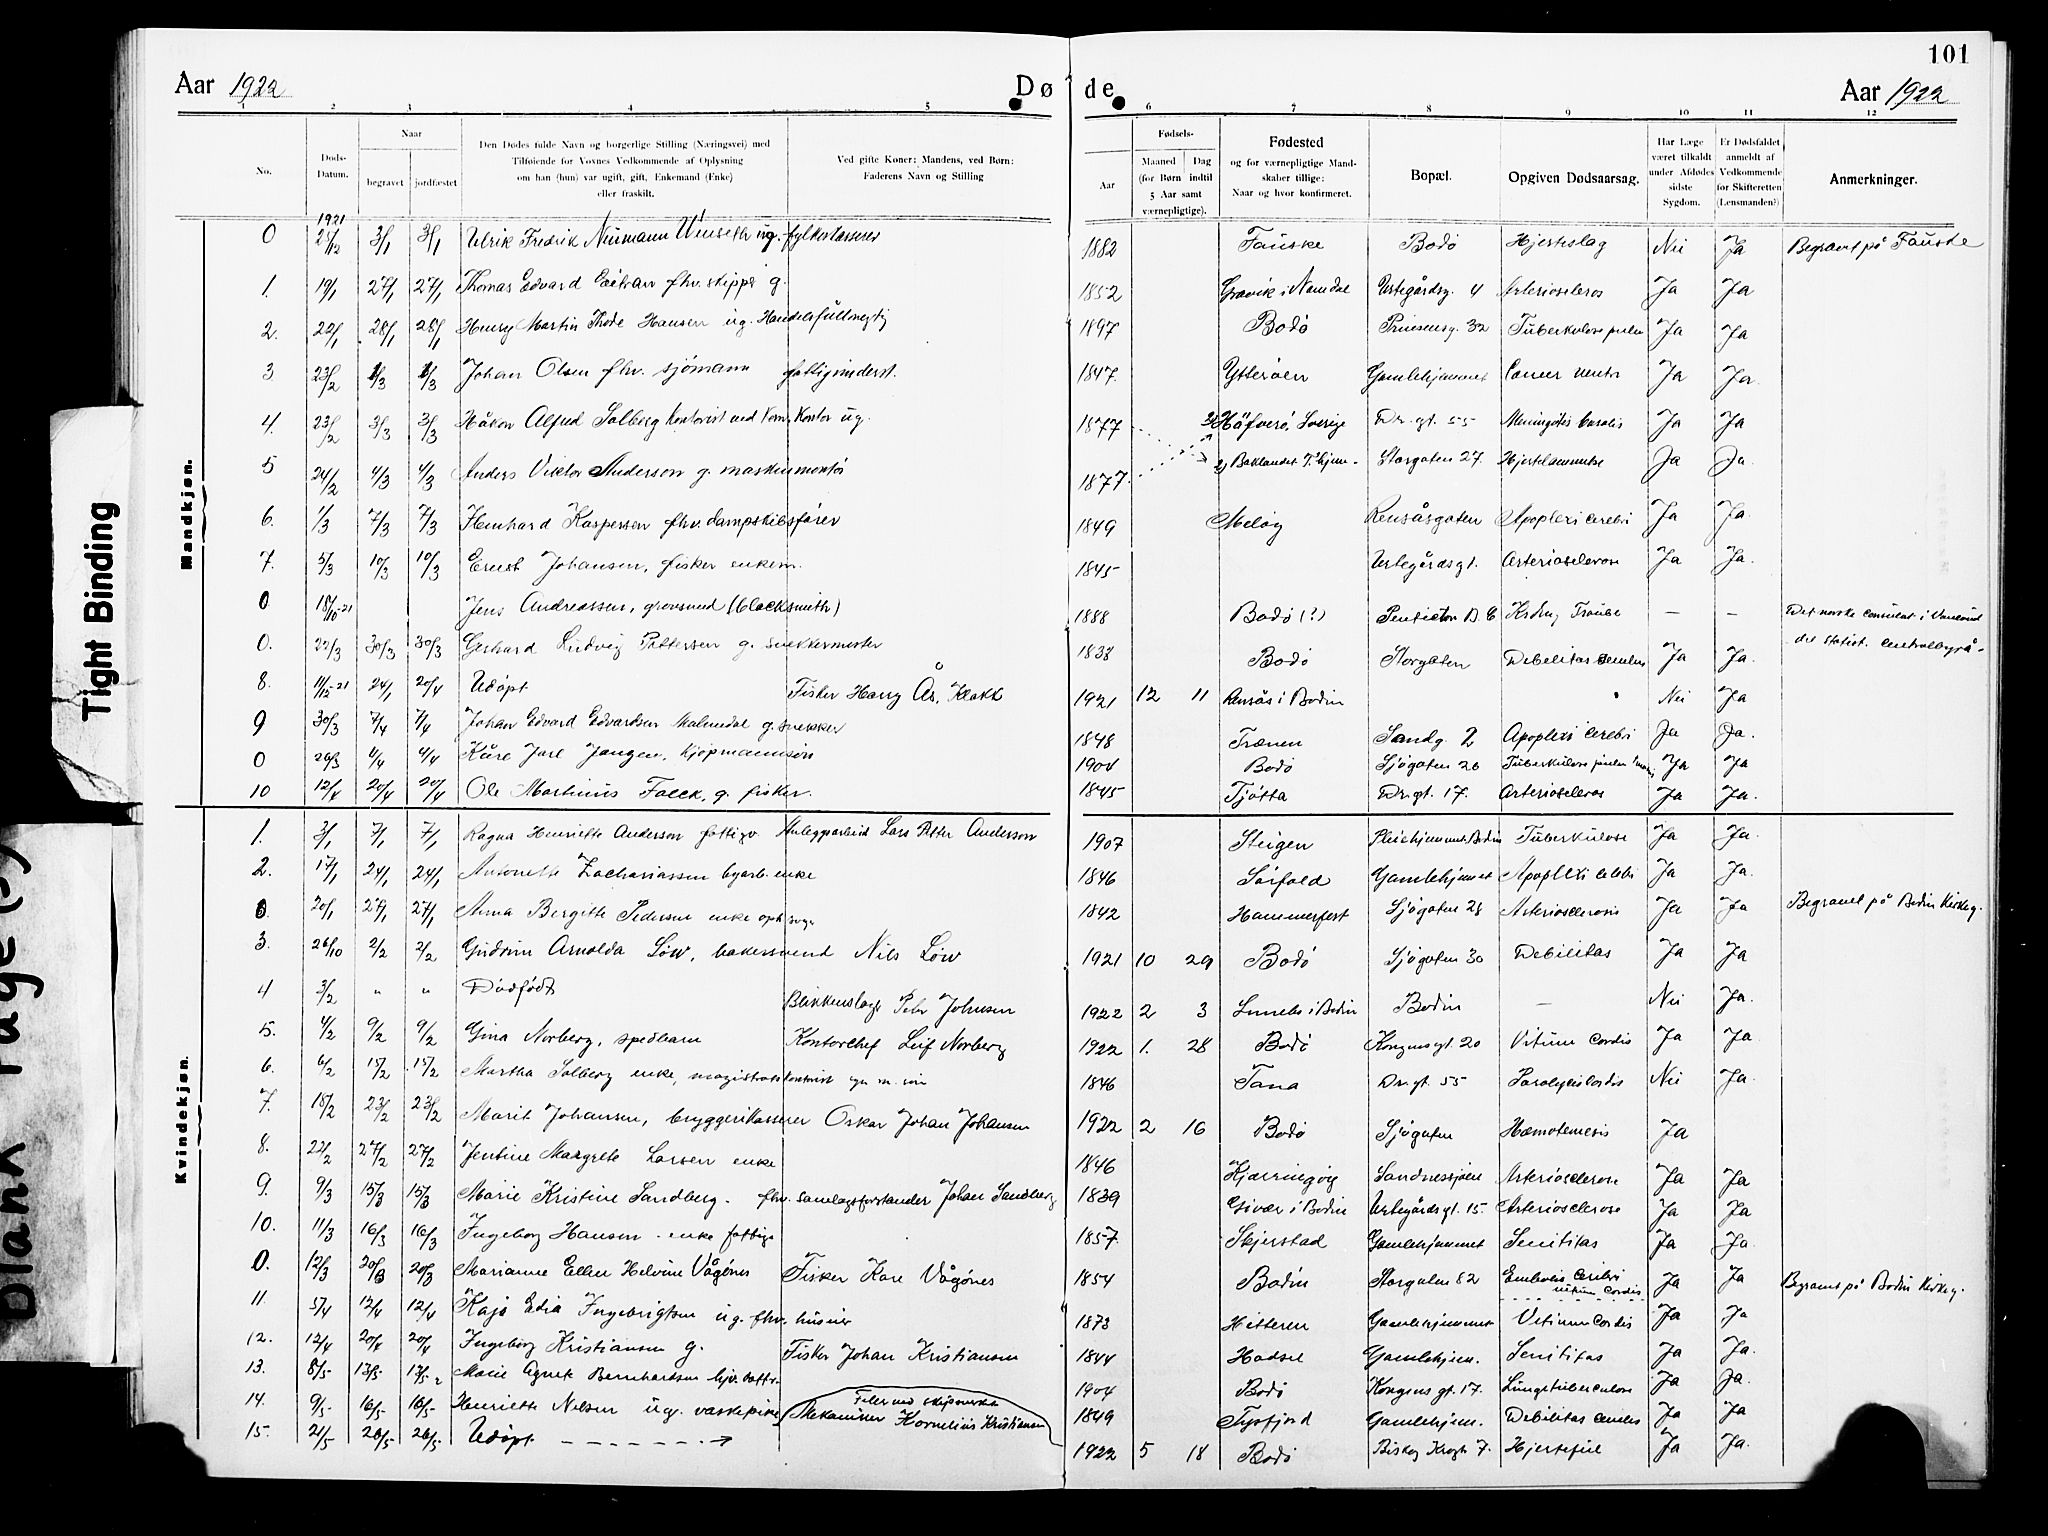 101
Aar 1922 Døde Aar 1922
1 2 3 4 5 6 7 8 9 10 11 12
No.
Døds-Datum.
Naar
begravet jordfæstet
Den Dødes fulde Navn og borgerlige Stilling (Næringsvei) med
Tilføiende for Voxnes Vedkommende af Oplysning
om han (hun) var ugift, gift, Enkemand (Enke)
eller fraskilt.
Ved gifte Koner: Mandens, ved Børn:
Faderens Navn og Stilling
Fødsels-
Aar
Maaned (for Børn 5 Aar samt værnepligtige).
Dag indtil
Fødested
og for værnepligtige Mandskaber tillige:
Naar og hvor konfirmeret.
Bopæl.
Opgiven Dødsaarsag.
Har Læge været tilkaldt under Afdødes sidste Sygdom.
Er Dødsfaldet anmeldt af Vedkommende for Skifteretten (Lensmanden?)
Anmerkninger.
Mandkjøn.
0 1921 3/1 3/1 Ulrik Fredrik Neumann ug. fylkeskasserer 1882 Fauske Bodø Hjerteslag Nei Ja Begravet på Fauske
1. 19/1 27/1 27/1 Thomas Edvard fhv. skipper g. 1852 Gravik i Namdal Urtegårdsg. 4 Arterioscleros Ja Ja
2. 22/1 28/1 28/1 Henry Martin Thode Hansen ug. Handelsfullmegtig 1897 Bodø Prinsensg. 32 Tuberkulose pulm Ja Ja
3 23/2 1/3 1/3 Johan Olsen fhv. sjømann fattigunderst. 1847 Ytterøen Gamlehjemmet Cancer ventr Ja Ja.
4. 23/2 3/3 3/3 Håkon Alfred Solberg Kontorist ved Kontor ug. 1877 Häfverö, Sverige Dr. gt. 55 Ja Ja
5 24/2 4/3 4/3 Anders Viktor Anderson g. maskinmontør 1877 Baklandet T.hjem Storgaten 27. Hjertelammelse Ja Ja.
6. 1/3 7/3 7/3 Kaspersen fhv. dampskibsfører 1849 Meløy Rensåsgaten Apoplexi cerebri Ja Ja.
7. 5/3 10/3 10/3 Ernst Johansen, fisker enkem. 1845 Urtegårdsgt. Arteriosclerose Ja Ja.
0 18/10-21 Jens Andreassen, grovsmed (blacksmith) 1888 Bodø (?) Penticton B.C — — Det norske consulat i
det statist. centralbyrå.
0. 22/3 30/3 30/3 Gerhard Ludvig Pettersen g. snekkermester 1838 Bodø Storgaten Debilitas senilis Ja Ja.
8. 11/12-21 24/1 20/4 Udøpt Fisker Harry Ås, Klakk 1921 12 11 Rensås i Bodin Nei Ja
9 30/3 7/4 7/4 Johan Edvard Edvardsen Malmedal g. snekker 1848 Trænen Sandg. 2 Apoplexi cerebri Ja Ja.
0 26/3 4/4 4/4 Kåre Jarl Jangen, kjøpmannsøn 1904 Bodø Sjøgaten 26 Tuberkulose pulm Ja Ja
10 12/4 20/4 20/4 Ole Martinus Falck, g. fisker. 1845 Tjøtta Dr.gt. 17. Arterioscleros Ja Ja.
Kvindekjøn.
1. 3/1 7/1 7/1 Ragna Henriette Anderson fattigv. Anleggsarbeid Lars Petter Anderson 1907 Steigen Pleiehjemmet Bodin Tuberkulose Ja Ja.
2. 17/1 24/1 24/1 Antonette Zachariassen byarb. enke 1846 Sørfold Gamlehjemmet Apoplexi cerebri Ja Ja.
0. 20/1 27/1 27/1 Anna Bergitte Pedersen enke 1842 Hammerfest Sjøgaten 28 Arteriosclerosis Ja Ja Begravet på Bodin Kirkeg.
3. 26/10 2/2 2/2 Gudrun Arnolda Löw, bakersvend Nils Löw 1921 10 29 Bodø Sjøgaten 30 Debilitas Ja Ja
4 3/2 " " Dødfødt Blikkenslager Peder Johnsen 1922 2 3 i Bodin Bodin — Nei Ja.
5. 4/2 9/2 9/2 Gina Norberg, spedbarn Kontorchef Leif Norberg 1922 1. 28 Bodø Kongensgt. 20 Vitium cordis Ja Ja.
6. 6/2 15/2 15/2 Martha Solberg enke, magistrats 1846 Tana Dr.gt. 55 Paralysis cordis Nei Ja.
7. 18/2 23/2 23/2 Marit Johansen, bryggerikasserer Oskar Johan Johansen 1922 2 16 Bodø Sjøgaten Hæmatemesis Ja
8. 22/2 27/2 27/2 Jentine Margrete Larsen enke 1846 Kjærringøy Sandnessjøen Arteriosclerose Ja Ja
9. 9/3 15/3 15/3 Marie Kristine Sandberg. fhv. samlagsforstander Johan Sandberg 1839 Givær i Bodin Urtegårdsgt. 15. Arteriosclerose Ja Ja
10. 11/3 16/3 16/3 Ingeborg Hansen enke fattige 1857. Skjerstad Gamlehjemmet Senilitas Ja Ja.
0. 12/3 20/3 20/3 Marianne Ellen Helvine Vågønes Fisker Kare Vågønes 1854 Bodin Storgaten 82 Embolia cerebri
vitium cordis Ja Ja Begravet på Bodin Kirkeg.
11. 5/4 12/4 12/4 Kaja Edia Ingebrigtsen ug. fhv. husier 1873 Hitteren Gamlehjemmet Vitium cordis Ja Ja
12. 12/4 20/4 20/4 Ingeborg Kristiansen g. Fisker Johan Kristiansen 1844 Hadsel Gamlehjem. Senilitas Ja Ja
13. 8/5 13/5 13/5 Marie Agnete Bernhardsen 1904 Bodø Kongens gt. 17. Lungetuberculose Ja Ja.
14. 9/5 16/5 16/5 Henriette Nilsen ug. vaskepike 1849 Tysfjord Gamlehjem. Debilitas senilis Ja Ja
15. 21/5 26/5 26/5 Udøpt Mekaniker Kornelius Kristiansen 1922 5 18 Bodø Biskop Kroghs 7. Hjertefeil Ja Ja.
Tight Binding
Blank Page(s)